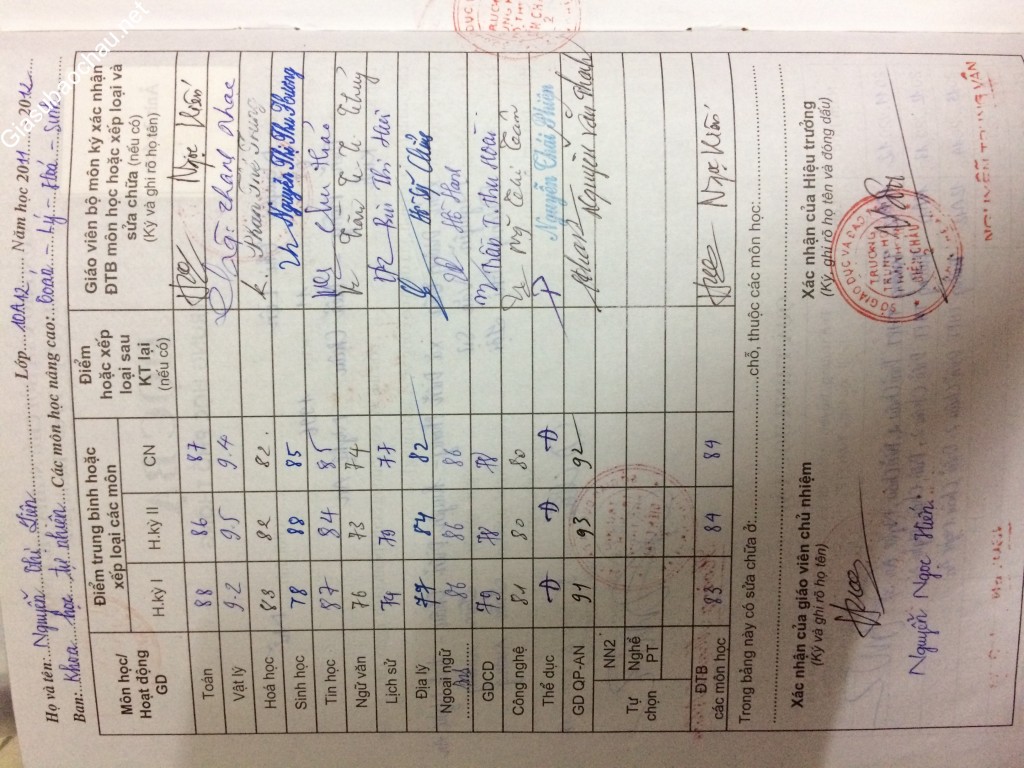 Giasubaochau.net
Họ và tên: Nguyễn Thị Hiền Lớp 10A12 Năm học 2011 2012
Ban: Khoa học tự nhiên Các môn học nâng cao: Toán - Lý - Hoá - Sinh
Môn học/ Hoạt động GD | Điểm trung bình hoặc xếp loại các môn | Điểm hoặc xếp loại sau KT lại (nếu có) | Giáo viên bộ môn ký xác nhận ĐTB môn học hoặc xếp loại và sửa chữa (nếu có) (Ký và ghi rõ họ tên)
H.kỳ I | H.kỳ II | CN
Toán 88 86 87 Ngọc Hiền
Vật lý 9.2 9.5 9.4 Thanh Nhạc
Hoá học 83 82 82
Sinh học 78 88 85 Nguyễn Thị Thu Hương
Tin học 87 84 85 Chu Thảo
Ngữ văn 76 73 74 Trần T. T. Thuý
Lịch sử 74 79 77 Bùi Thị Huê
Địa lý 77 84 82
Ngoại ngữ 86 86 86
GDCD 79 78 78
Công nghệ 81 80 80
Thể dục Đ Đ Đ Nguyễn Thái Phiên
GD QP-AN 91 93 92 Nguyễn Văn Thành
Tự chọn NN2
Nghề PT
ĐTB các môn học 83 84 84 Ngọc Hiền
Trong bảng này có sửa chữa ở: chỗ, thuộc các môn học:
Xác nhận của giáo viên chủ nhiệm
(Ký và ghi rõ họ tên)
Nguyễn Ngọc Hiền
Xác nhận của Hiệu trưởng
(Ký, ghi rõ họ tên và đóng dấu)
NGUYỄN TRUNG VĂN